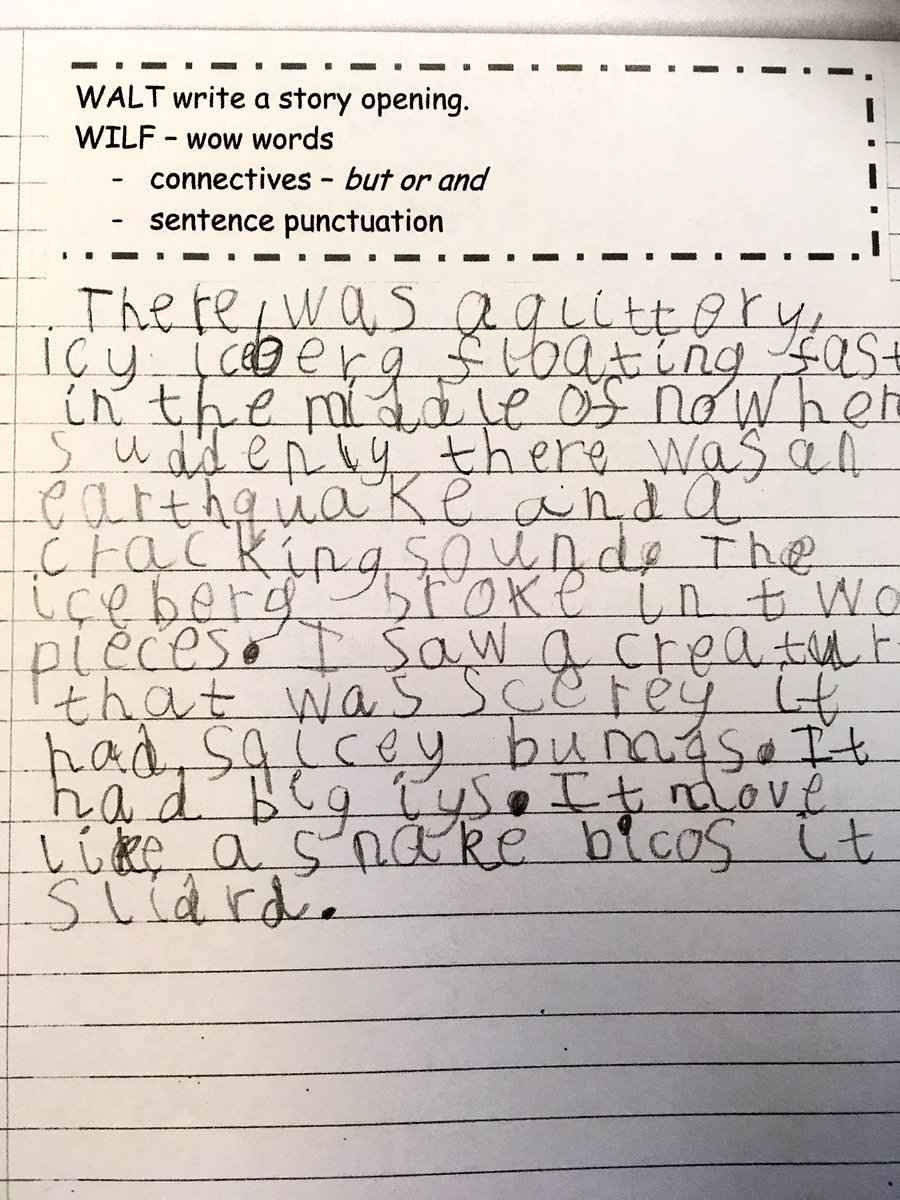 WALT write a story opening.
WILF – wow words
- connectives – but or and
- sentence punctuation
There was a glittery,
icy iceberg floating fast
in the middle of nowher
suddenly there was an
earthquake and a
cracking sound. The
iceberg broke in two
pieces. I saw a creatur
that was scerey it
had sqicey bumgs. It
had big iys. It move
like a snake bicos it
slidrd.